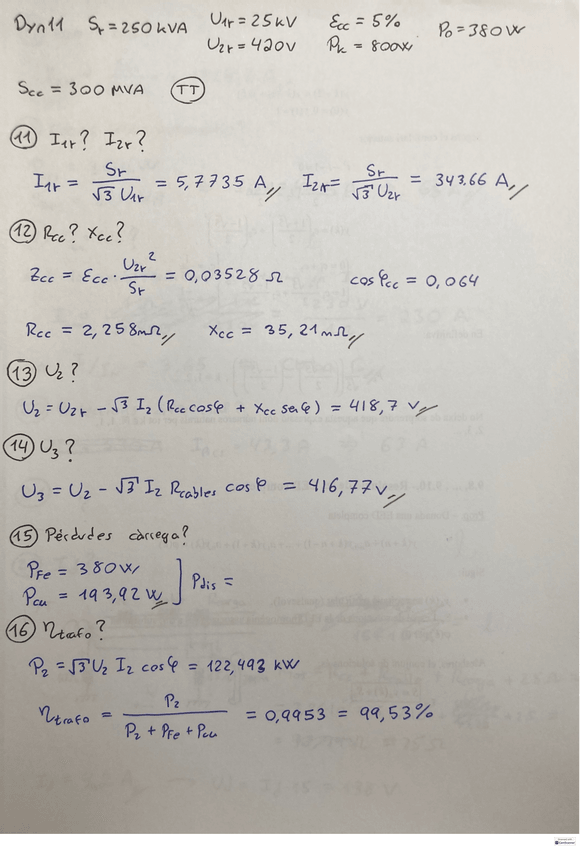 Dyn11 Sr = 250 kVA U1r = 25 kV εcc = 5% P0 = 380 W
U2r = 420 V Pk = 800 W
Scc = 300 MVA TT
11 I1r? I2r?
I1r = Sr / √3 U1r = 5,7735 A // I2r = Sr / √3 U2r = 343,66 A //
12 Rcc? Xcc?
Zcc = εcc · U2r² / Sr = 0,03528 Ω cos φcc = 0,064
Rcc = 2,258 mΩ // Xcc = 35,21 mΩ //
13 U2?
U2 = U2r - √3 I2 (Rcc cos φ + Xcc sen φ) = 418,7 V //
14 U3?
U3 = U2 - √3 I2 Rcables cos φ = 416,77 V //
15 Pérdudes càrrega?
PFe = 380 W
Pcu = 193,92 W // ] Pdis =
16 ηtrafo?
P2 = √3 U2 I2 cos φ = 122,493 kW
ηtrafo = P2 / P2 + PFe + Pcu = 0,9953 = 99,53%